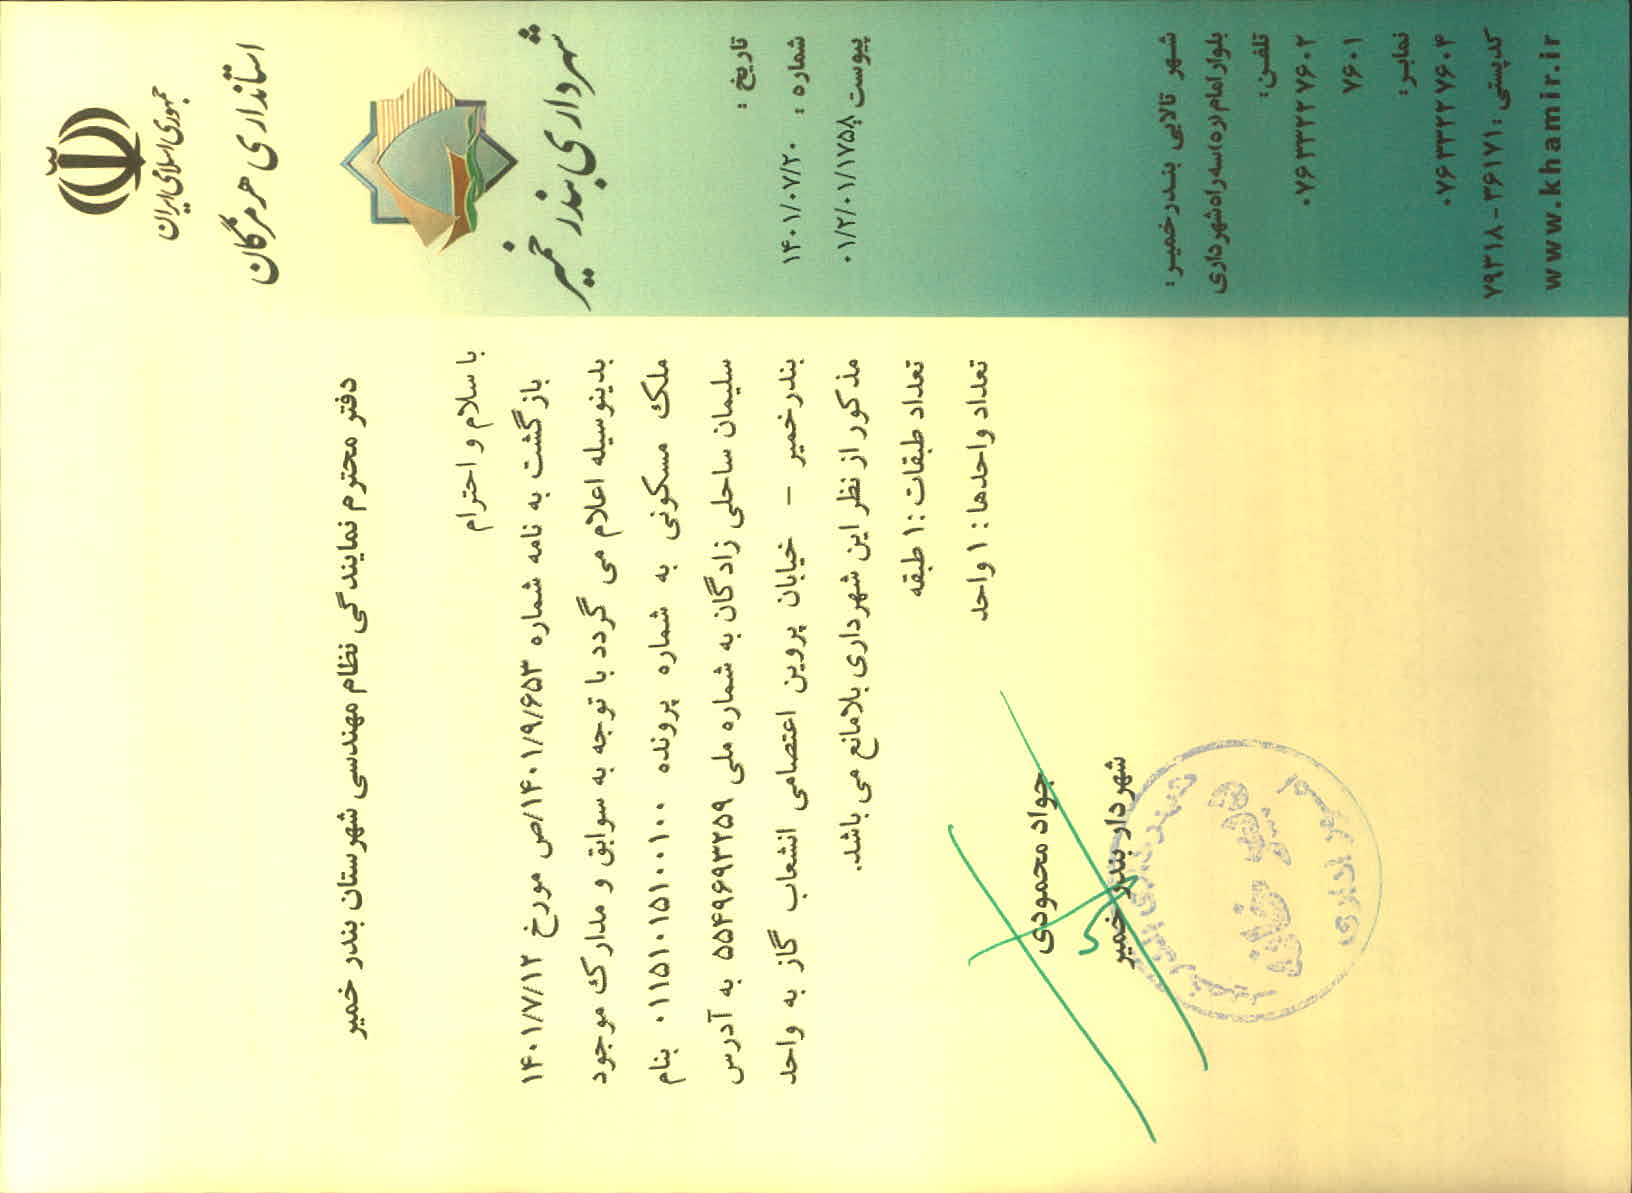 جمهوری اسلامی ایران
استانداری هرمزگان
شهرداری بندر خمیر
تاریخ :
شماره : ۱۴۰۱/۰۷/۲۰
پیوست ۰۱/۲/۰۱/۱۷۵۸
دفتر محترم نمایندگی نظام مهندسی شهرستان بندر خمیر
با سلام و احترام
بازگشت به نامه شماره ۱۴۰۱/۹/۶۵۳/ص مورخ ۱۴۰۱/۷/۱۲
بدینوسیله اعلام می گردد با توجه به سوابق و مدارک موجود
ملک مسکونی به شماره پرونده ۰۱۱۵۱۰۱۵۱۰۰۱۰۰ بنام
سلیمان ساحلی زادگان به شماره ملی ۵۵۴۹۶۹۳۲۵۹ به آدرس
بندرخمیر - خیابان پروین اعتصامی انشعاب گاز به واحد
مذکور از نظر این شهرداری بلامانع می باشد.
تعداد طبقات :۱ طبقه
تعداد واحدها : ۱ واحد
جواد محمودی
شهردار بندر خمیر
شهرداری بندر خمیر
دبیرخانه
مهر اداری
شهر تالابی بندرخمیر:
بلوار امام(ره)سه راه شهرداری
تلفن:
۰۷۶۳۳۲۲۷۶۰۲
۷۶۰۱
نمابر:
۰۷۶۳۳۲۲۷۶۰۴
کدپستی :۳۶۱۷۱-۷۹۳۱۸
www.khamir.ir